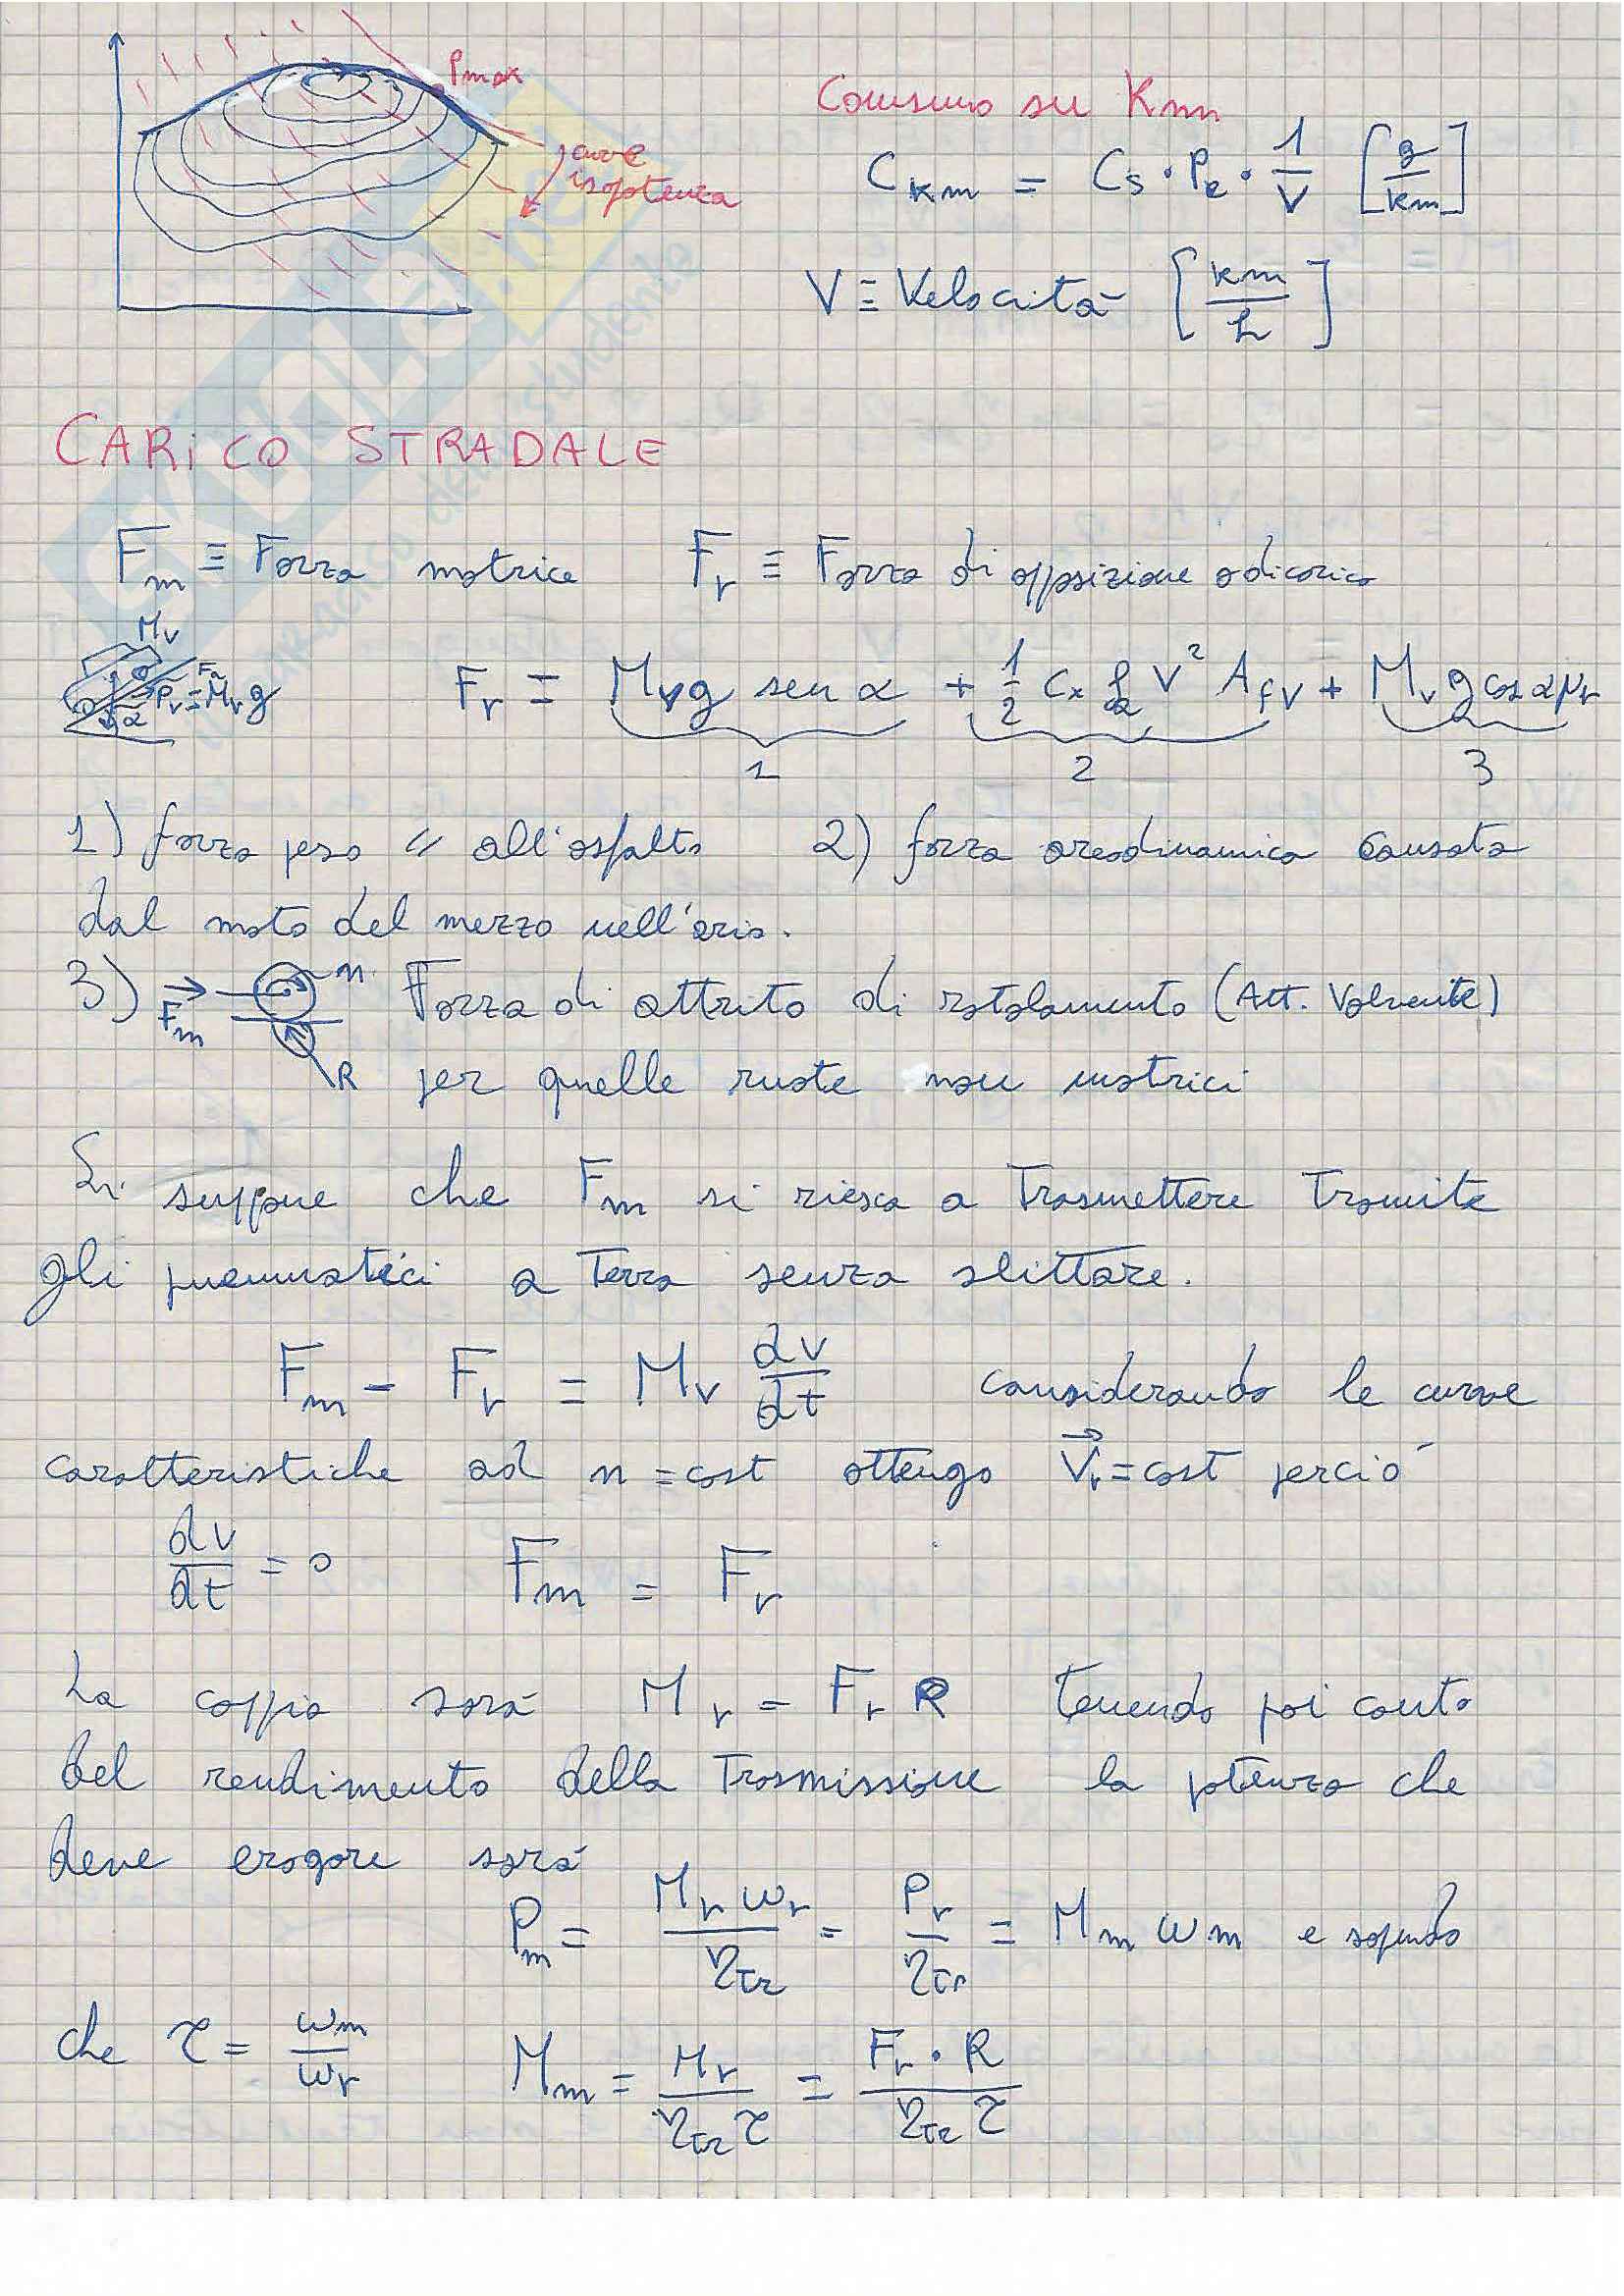 Pmax
curve
isopotenza
Consumo su Km
C_km = C_s · P_e · 1/V [g/km]
V ≡ Velocità [km/h]
CARiCO STRADALE
F_m ≡ Forza motrice F_r ≡ Forza di opposizione
M_v
P_v = M_v g
α
F_r = M_v g sen α + 1/2 C_x ρ_a V² A_fv + M_v g cos α μ_r
1 2 3
1) forza peso // all'asfalto 2) forza areodinamica causata
dal moto del mezzo nell'aria.
3) F_m n R Forza di attrito di rotolamento (Att. Volvente)
per quelle ruote non motrici
Si suppone che F_m si riesca a Trasmettere Tramite
gli pneumatici a Terra senza slittare.
F_m - F_r = M_v dv/dt considerando le curve
caratteristiche ad n = cost ottengo V_r = cost perciò
dv/dt = 0 F_m = F_r
La coppia sarà M_r = F_r R Tenendo poi conto
del rendimento della Trasmissione la potenza che
deve erogare sarà
P_m = M_r ω_r / η_tr = P_r / η_tr = M_m ω_m e sapendo
che τ = ω_m / ω_r M_m = M_r / η_tr τ = F_r · R / η_tr τ